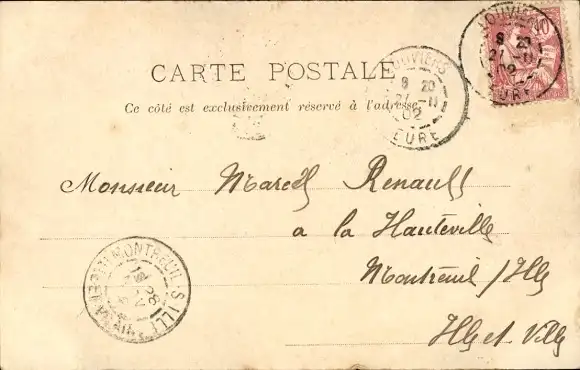 LOUVIERS
8 20
27 -11
02
EURE
10
LOUVIERS
8 20
27 -11
02
EURE
CARTE POSTALE
Ce côté est exclusivement réservé à l'adresse
Monsieur Marcel Renault
a la Hauteville
Montreuil / Ille
Ille et Vill
MONTREUIL-S-ILLE
28
ILLE-ET-VILAINE